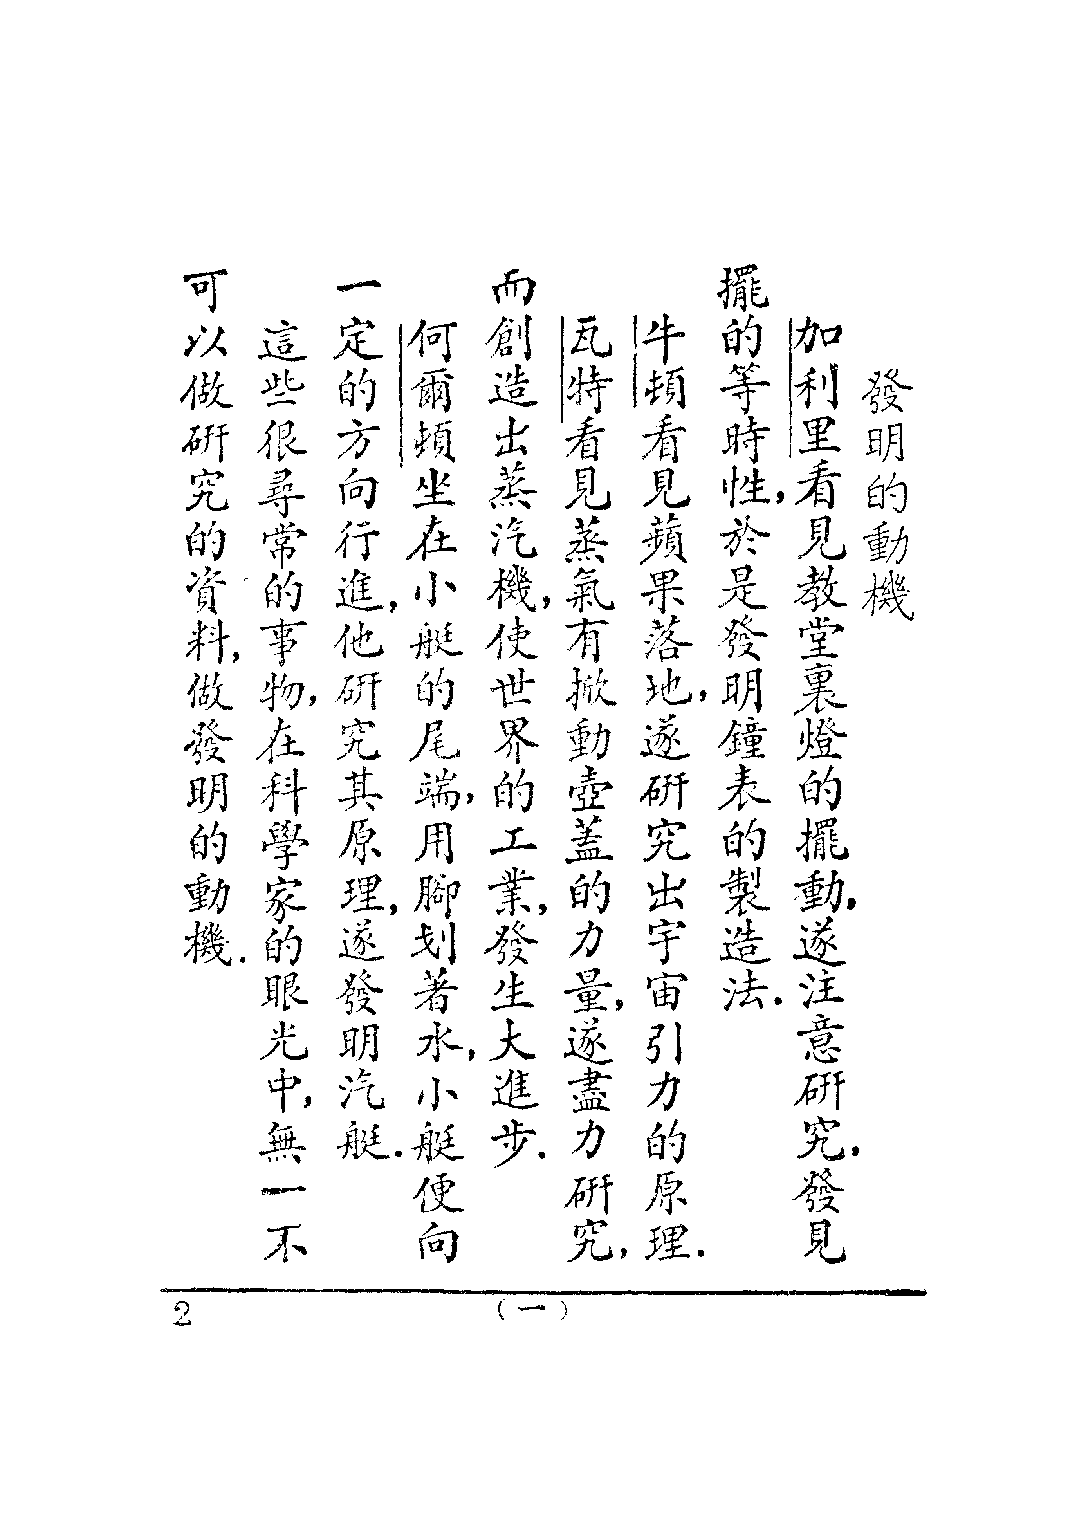 發明的動機
加利里看見教堂裏燈的擺動,遂注意研究,發見
擺的等時性,於是發明鐘表的製造法.
牛頓看見蘋果落地,遂研究出宇宙引力的原理.
瓦特看見蒸氣有掀動壺蓋的力量,遂盡力研究,
而創造出蒸汽機,使世界的工業,發生大進步.
何爾頓坐在小艇的尾端,用腳划著水,小艇便向
一定的方向行進,他研究其原理,遂發明汽艇.
這些很尋常的事物,在科學家的眼光中,無一不
可以做研究的資料,做發明的動機.
2
(一)